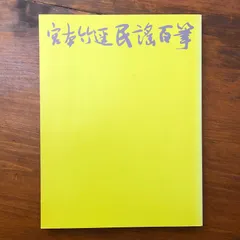 宮本竹逕民謡百筆